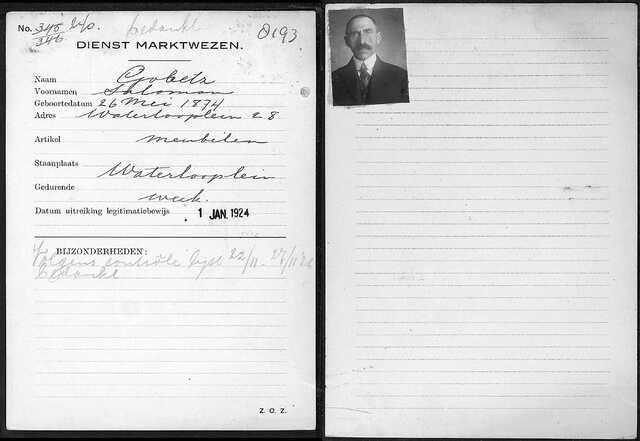 No. 345 Wp. bedankt 0193
346
DIENST MARKTWEZEN.
Naam Gobetz
Voornamen Salomon
Geboortedatum 26 Mei 1874
Adres Waterlooplein 28
Artikel meubilen
Staanplaats Waterlooplein
Gedurende week.
Datum uitreiking legitimatiebewijs 1 JAN. 1924
BIJZONDERHEDEN:
Volgens controle lijst 22/11 - 27/11
bedankt
Z. O. Z.